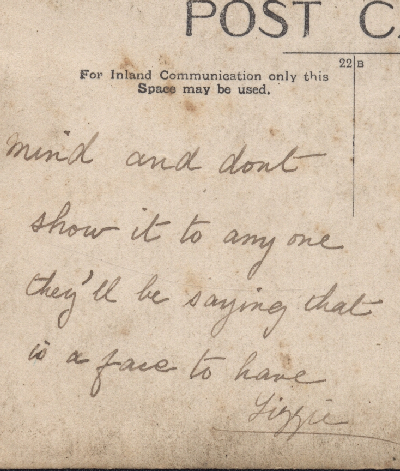 POST CA
22 B
For Inland Communication only this
Space may be used.
mind and dont
show it to any one
they'll be saying that
is a face to have
Lizzie